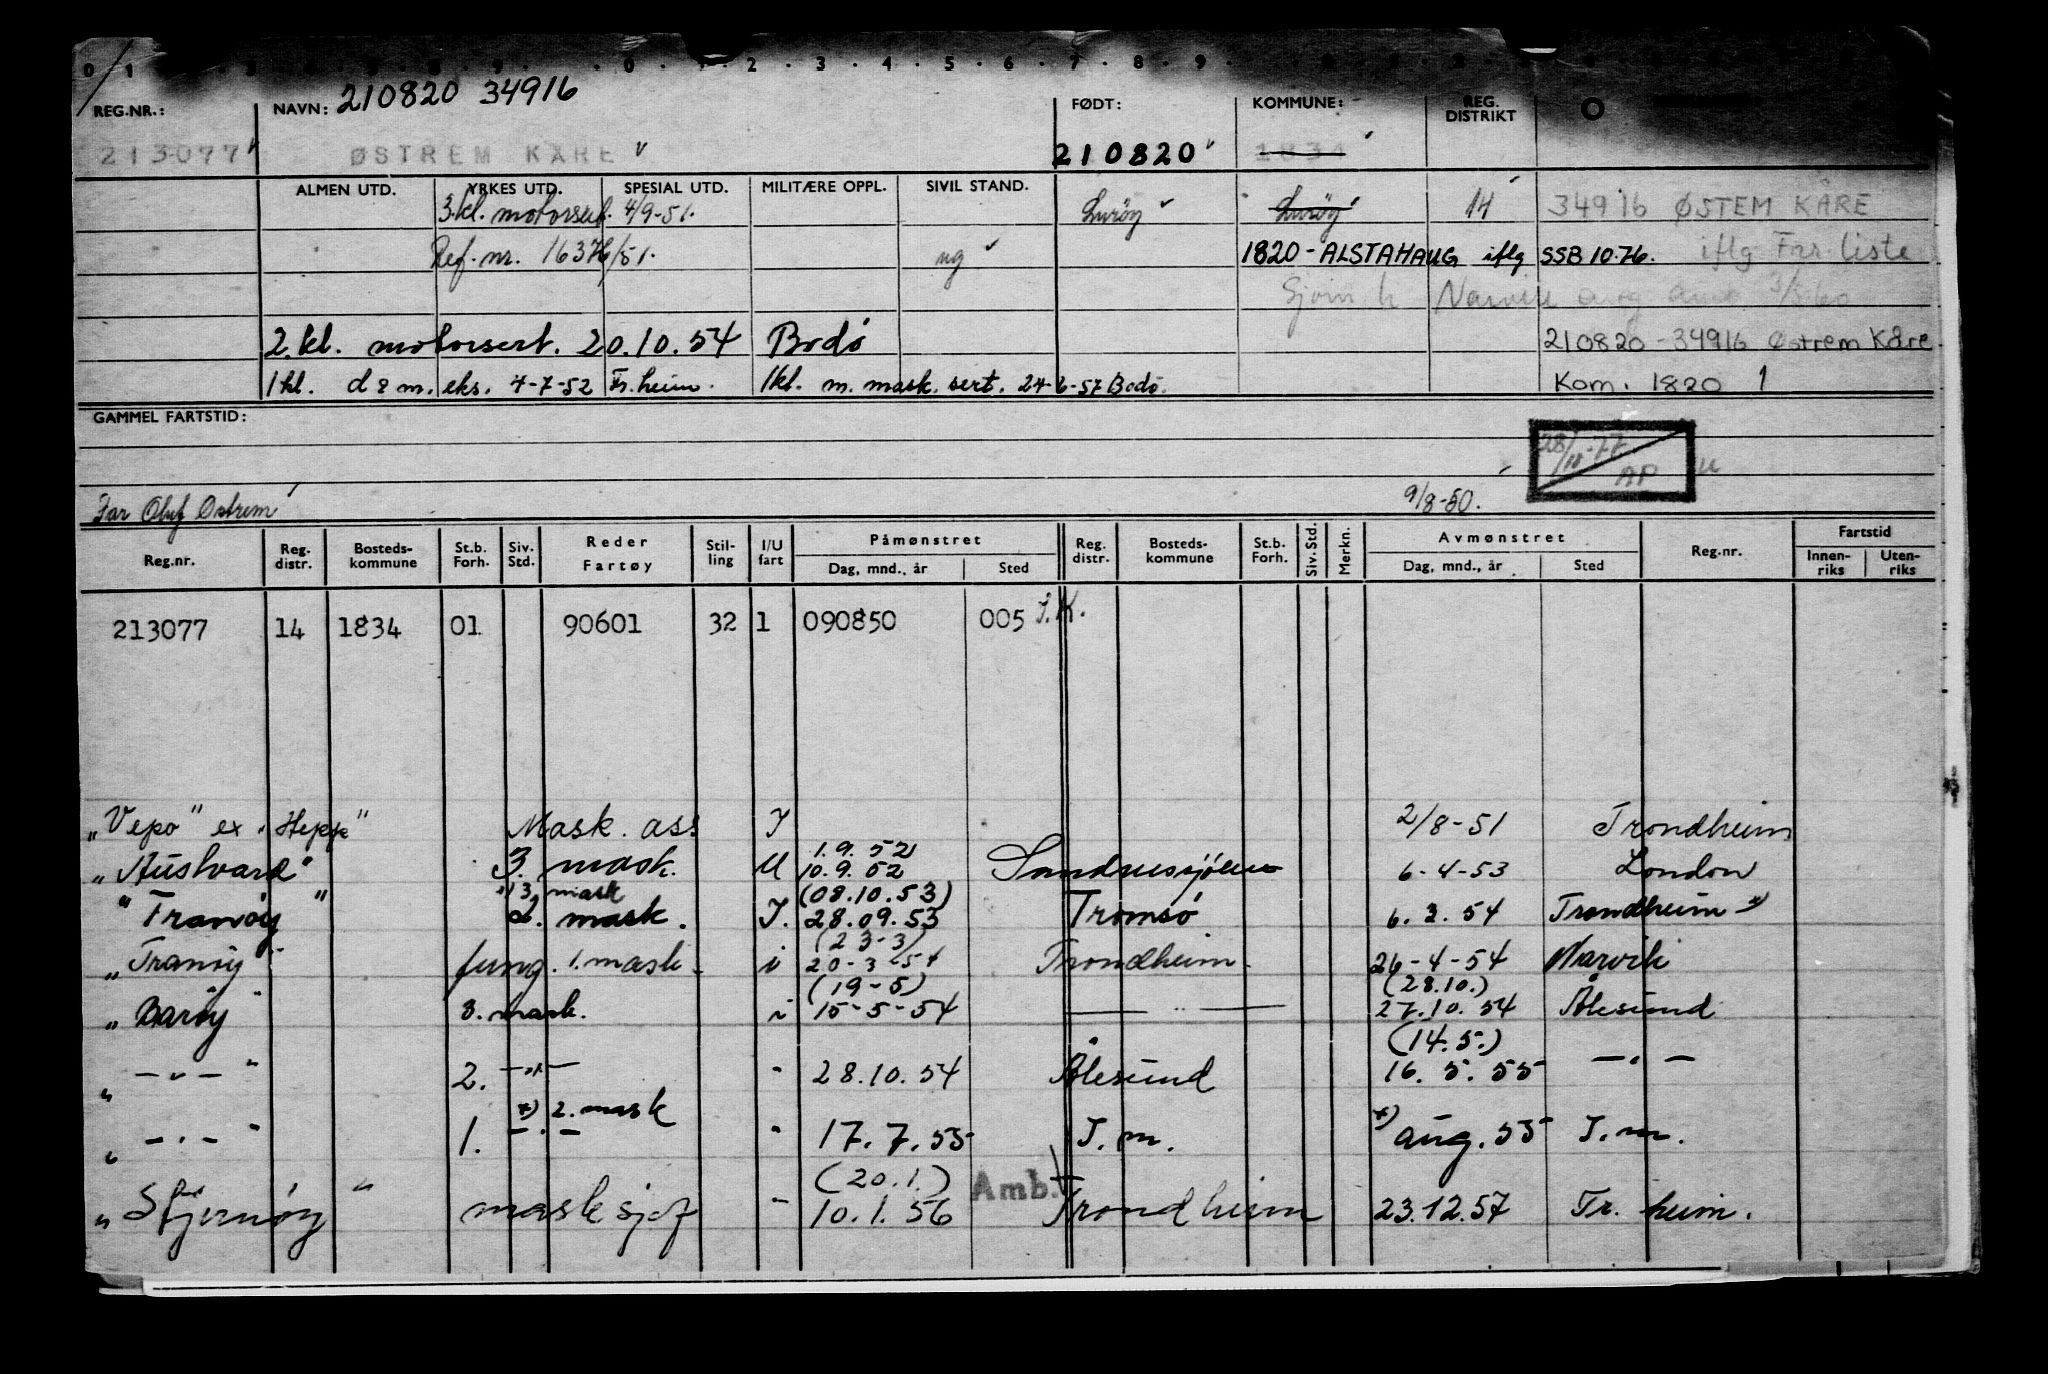 210820 34916
REG.NR.: NAVN: FØDT: KOMMUNE: REG. DISTRIKT
213077 ØSTREM KÅRE 210820 1834
ALMEN UTD. YRKES UTD. SPESIAL UTD. MILITÆRE OPPL. SIVIL STAND.
3.kl. motorsert. 4/9-51. Lurøy Lurøy 14 34916 ØSTEM KÅRE
Ref. nr. 16376/51. ug 1820-ALSTAHAUG iflg SSB 10.76. iflg Frr. liste
Narvik 3/5.60
2. kl. motorsert. 20.10.54 Bodø 210820-34916 Østrem Kåre
1kl. d & m. eks. 4-7-52 Tr.heim. 1kl. m. mask. sert. 24-6-57 Bodø. Kom. 1820 1
GAMMEL FARTSTID:
28/10-77 AP
Far Oluf Østrem 9/8-50.
Reg.nr. Reg. distr. Bosteds-kommune St.b. Forh. Siv. Std. Reder Fartøy Stil-ling I/U fart Påmønstret Dag, mnd., år Sted Reg. distr. Bosteds-kommune St.b. Forh. Siv. Std. Merkn. Avmønstret Dag, mnd., år Sted Reg.nr. Fartstid Innen-riks Uten-riks
213077 14 1834 01 90601 32 1 090850 005 J.K.
"Vepo" ex "Hepp" Mask. ass I 2/8-51 Trondheim
1.9.52
"Austvard" 3. mask. U 10.9.52 Sandnessjøen 6-4-53 London
*) 3 mask (08.10.53)
"Tranøy" 2. mask. I. 28.09.53 Tromsø 6.2.54 Trondheim *)
(23-3)
"Tranøy" fung. 1. mask. i 20-3-54 Trondheim. 26-4-54 Narvik
(19-5) (28.10.)
"Barøy" 3. mask. i 15-5-54 — " — 27.10.54 Ålesund
(14.5.)
" — " — " 2. — " — " 28.10.54 Ålesund 16.5.55 — " —
*) 2. mask
" — " — " 1. — " — " 17.7.55 T.m. *) aug. 55 T.m.
(20.1.) Amb.
"Stjernøy" mask sjef " 10.1.56 Trondheim 23.12.57 Tr. heim.